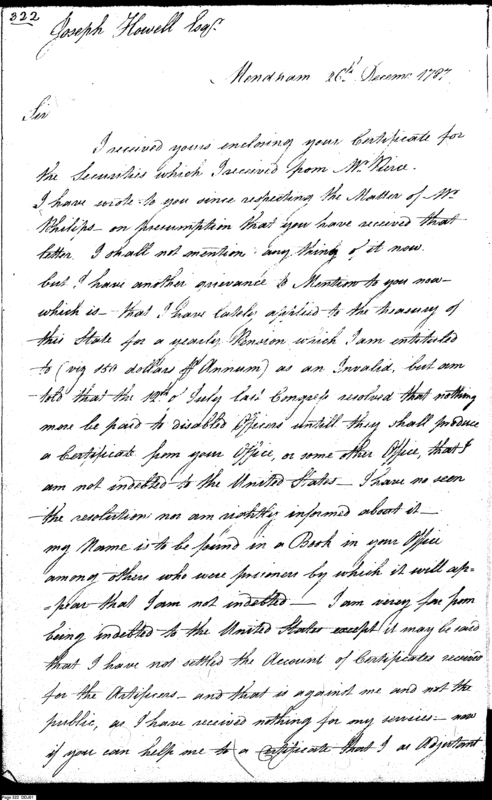 322
Joseph Howell Esqr.
Mendham 26th Decemr 1787
Sir
I received yours enclosing your Certificate for
the Securities which I received from Mr. Pierce.
I have wrote to you since respecting the Matter of Mr.
Philips – on presumption that you have received that
letter I shall not mention any thing of it now.
but I have another grievance to Mention to you now –
which is – that I have lately applied to the treasury of
this State for a yearly Pension which I am intitled
to (viz 150 dollars pr Annum) as an Invalid, but am
told that the of July last Congress resolved that nothing
more be paid to disabled Officers untill they shall produce
a Certificate from your Office, or some other Office, that I
am not indebted to the United States – I have no seen
the resolution nor am rightly informed about it –
my Name is to be found in a Book in your Office
among others who were prisoners by which it will ap-
-pear that I am not indebted – I am verey far from
being indebted to the United States except it may be said
that I have not settled the Account of Certificates received
for the Artificers – and that is against me and not the
public, as I have received nothing for my services – now
if you can help me to a Certificate that I as Adjutant
Page 322 DDJ01